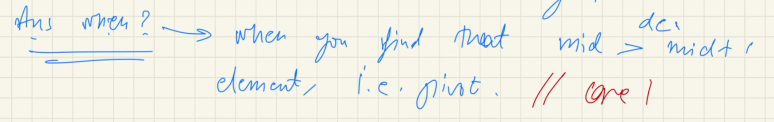 Ans when? → when you find that mid > mid+1
element, i.e. pivot. // case 1